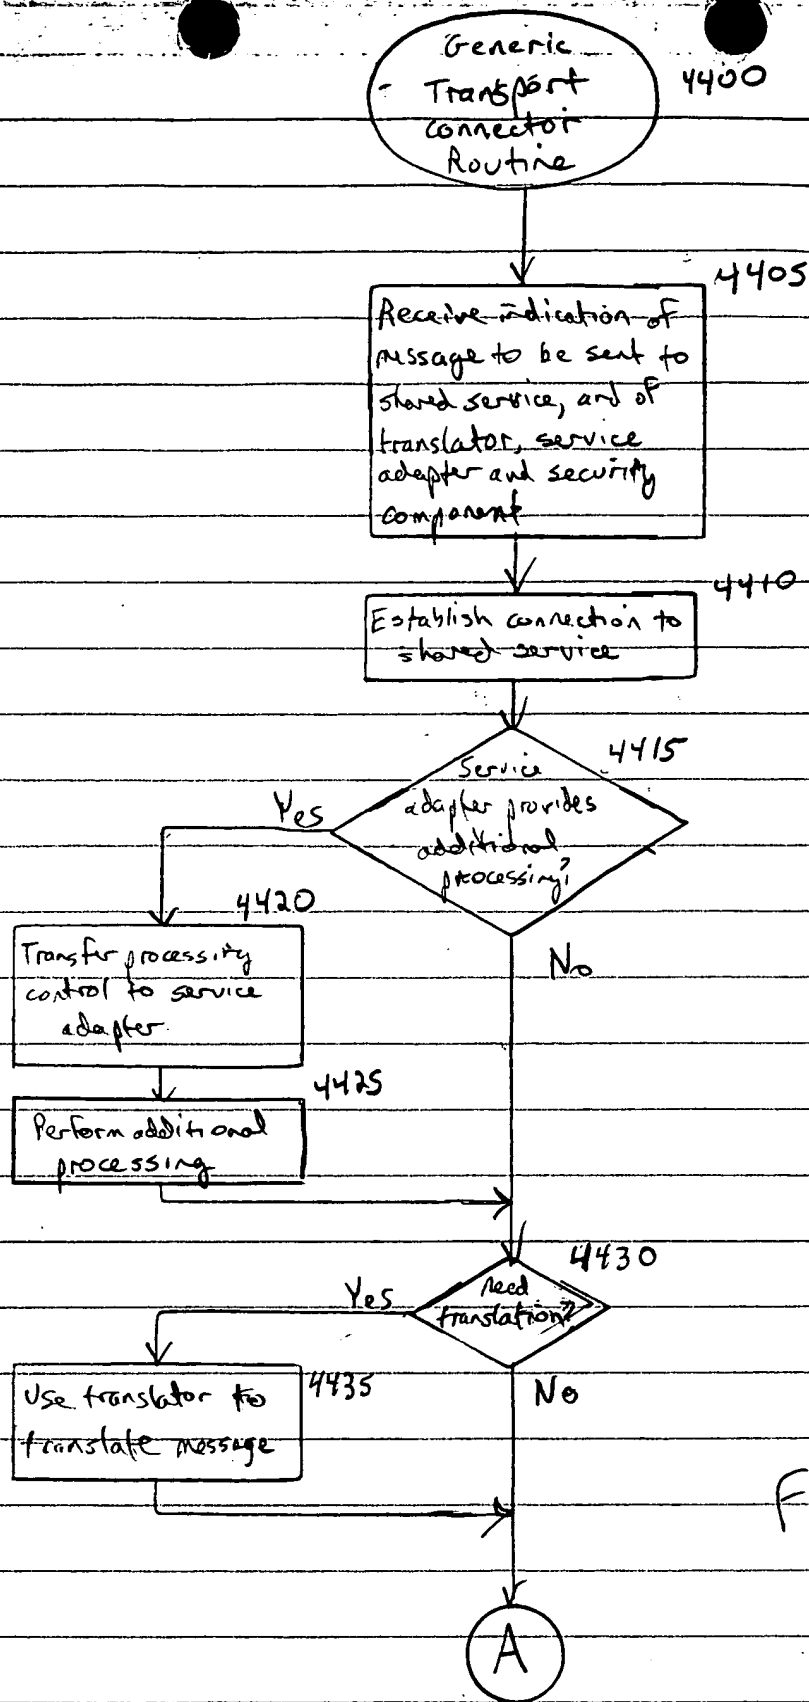 Generic
Transport
connector
Routine
4400
4405
Receive indication of
message to be sent to
shared service, and of
translator, service
adapter and security
component
4410
Establish connection to
shared service
4415
Service
adapter provides
additional
processing?
Yes
No
4420
Transfer processing
control to service
adapter
4425
Perform additional
processing
4430
need
translation?
Yes
No
4435
Use translator to
translate message
F
A